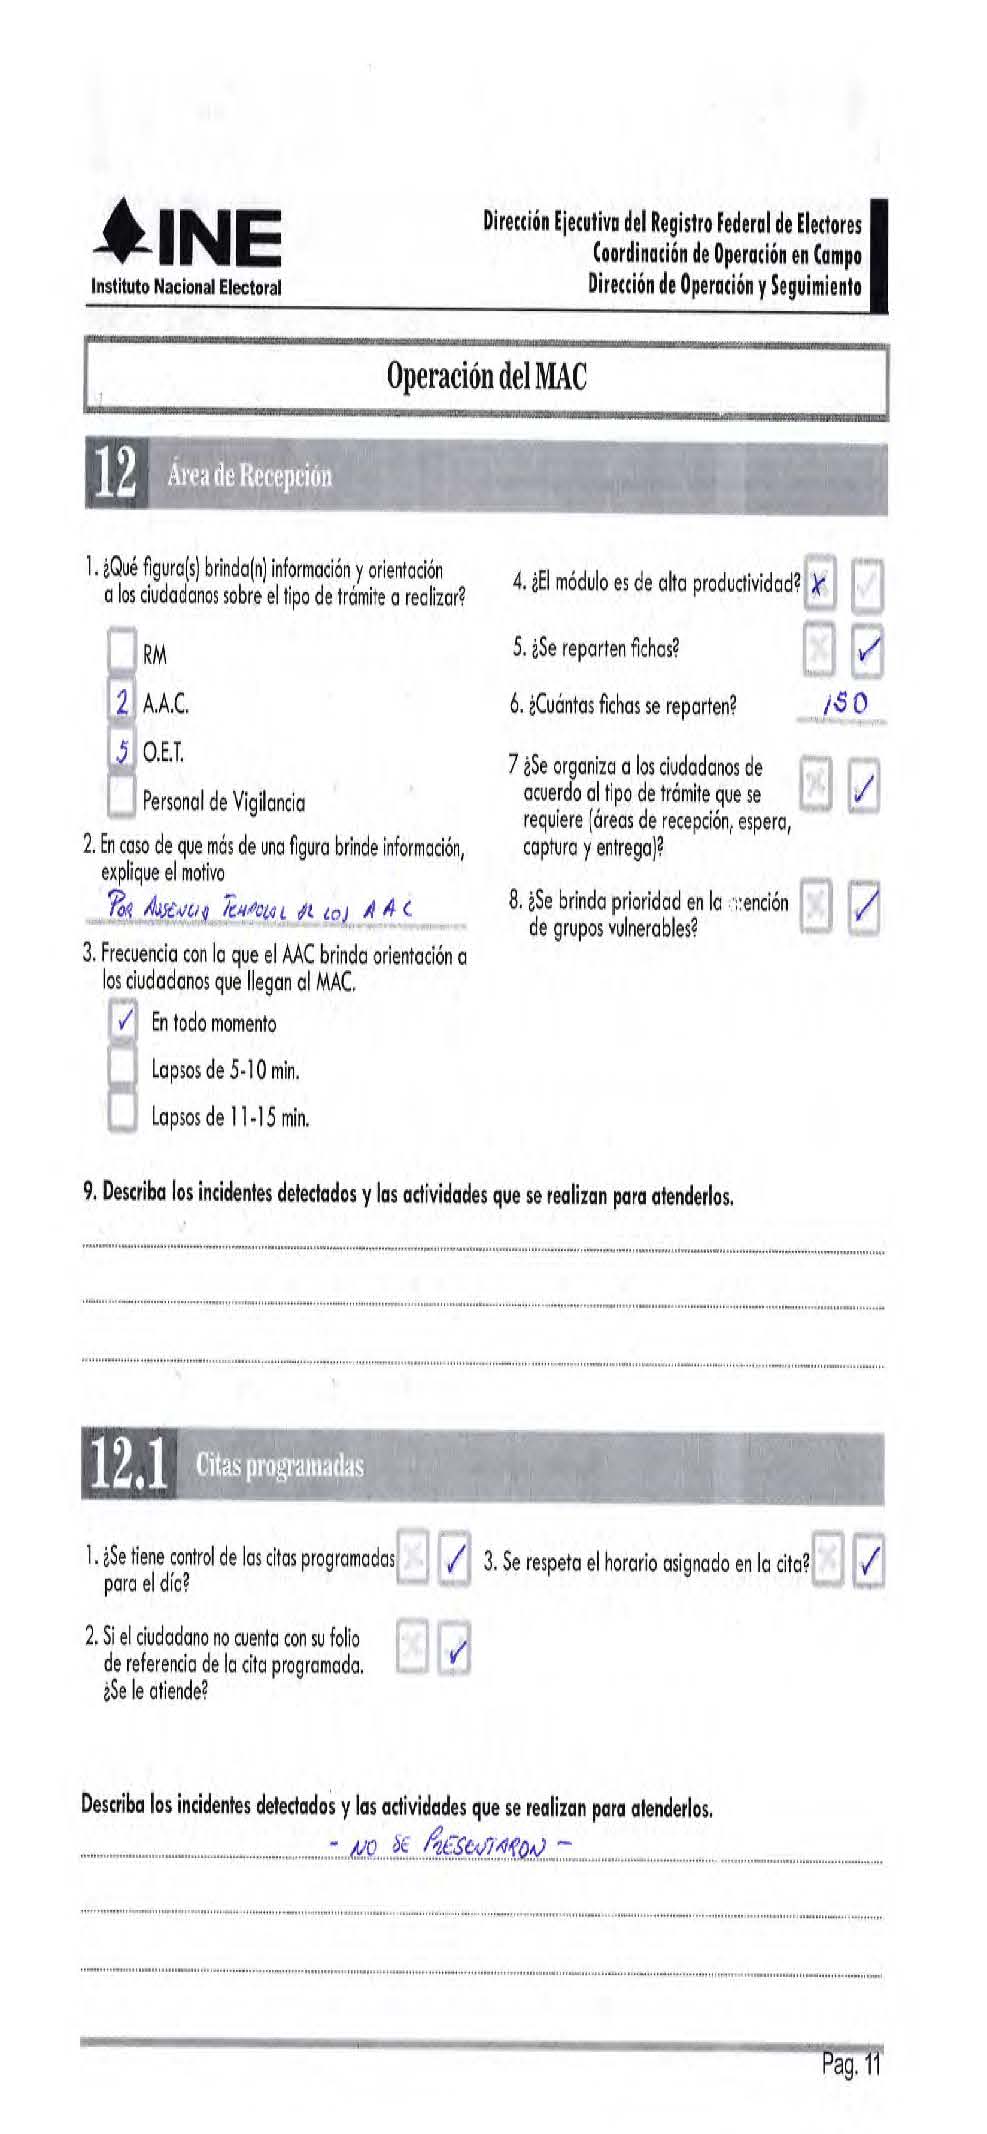 INE
Instituto Nacional Electoral
Dirección Ejecutiva del Registro Federal de Electores
Coordinación de Operación en Campo
Dirección de Operación y Seguimiento
Operación del MAC
12 Área de Recepción
1. ¿Qué figura(s) brinda(n) información y orientación
a los ciudadanos sobre el tipo de trámite a realizar?
RM
2 A.A.C.
5 O.E.T.
Personal de Vigilancia
2. En caso de que más de una figura brinde información,
explique el motivo
POR AUSENCIA TEMPORAL DE LOS AAC
3. Frecuencia con la que el AAC brinda orientación a
los ciudadanos que llegan al MAC.
✓ En todo momento
Lapsos de 5-10 min.
Lapsos de 11-15 min.
4. ¿El módulo es de alta productividad? X ✓
5. ¿Se reparten fichas? X ✓
6. ¿Cuántas fichas se reparten? 150
7 ¿Se organiza a los ciudadanos de
acuerdo al tipo de trámite que se
requiere (áreas de recepción, espera,
captura y entrega)? X ✓
8. ¿Se brinda prioridad en la atención
de grupos vulnerables? X ✓
9. Describa los incidentes detectados y las actividades que se realizan para atenderlos.
12.1 Citas programadas
1. ¿Se tiene control de las citas programadas
para el día? X ✓
2. Si el ciudadano no cuenta con su folio
de referencia de la cita programada.
¿Se le atiende? X ✓
3. Se respeta el horario asignado en la cita? X ✓
Describa los incidentes detectados y las actividades que se realizan para atenderlos.
- NO SE PRESENTARON -
Pag. 11